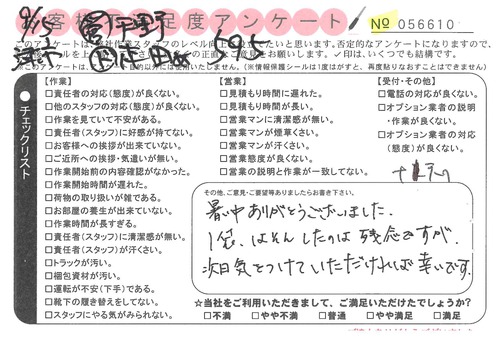 お客様満足度アンケート
No 056610
このアンケートは、
否定的なアンケートになりますので、
ご意見をお願いします。✓印は、いくつでも結構です。
※このアンケートは、アンケート目的以外には使用いたしません。(※情報保護シールは1度はがすと、再度貼りなおすことはできません)
チェックリスト
【作業】
□責任者の対応(態度)が良くない。
□他のスタッフの対応(態度)が良くない。
□作業を見ていて不安がある。
□責任者(スタッフ)に好感が持てない。
□お客様への挨拶が出来ていない。
□ご近所への挨拶・気遣いが無い。
□作業開始前の内容確認がなかった。
□作業開始時間が遅れた。
□荷物の取り扱いが雑である。
□お部屋の養生が出来ていない。
□作業時間が長すぎる。
□責任者(スタッフ)に清潔感が無い。
□責任者(スタッフ)が汗くさい。
□トラックが汚い。
□梱包資材が汚い。
□運転が不安(下手)である。
□靴下の履き替えをしてない。
□スタッフにやる気がみられない。
【営業】
□見積もり時間に遅れた。
□見積もり時間が長い。
□営業マンに清潔感が無い。
□営業マンが煙草くさい。
□営業マンが汗くさい。
□営業態度が良くない。
□営業の説明と作業が一致してない。
【受付・その他】
□電話の対応が良くない。
□オプション業者の説明
・作業が良くない。
□オプション業者の対応
(態度)が良くない。
その他、ご意見・ご要望等ありましたらお書き下さい。
暑中ありがとうございました。
1袋、はそんしたのは残念ですが、
次回気をつけていただければ幸いです。
☆当社をご利用いただきまして、ご満足いただけたでしょうか?
□不満 □やや不満 □普通 □やや満足 □満足